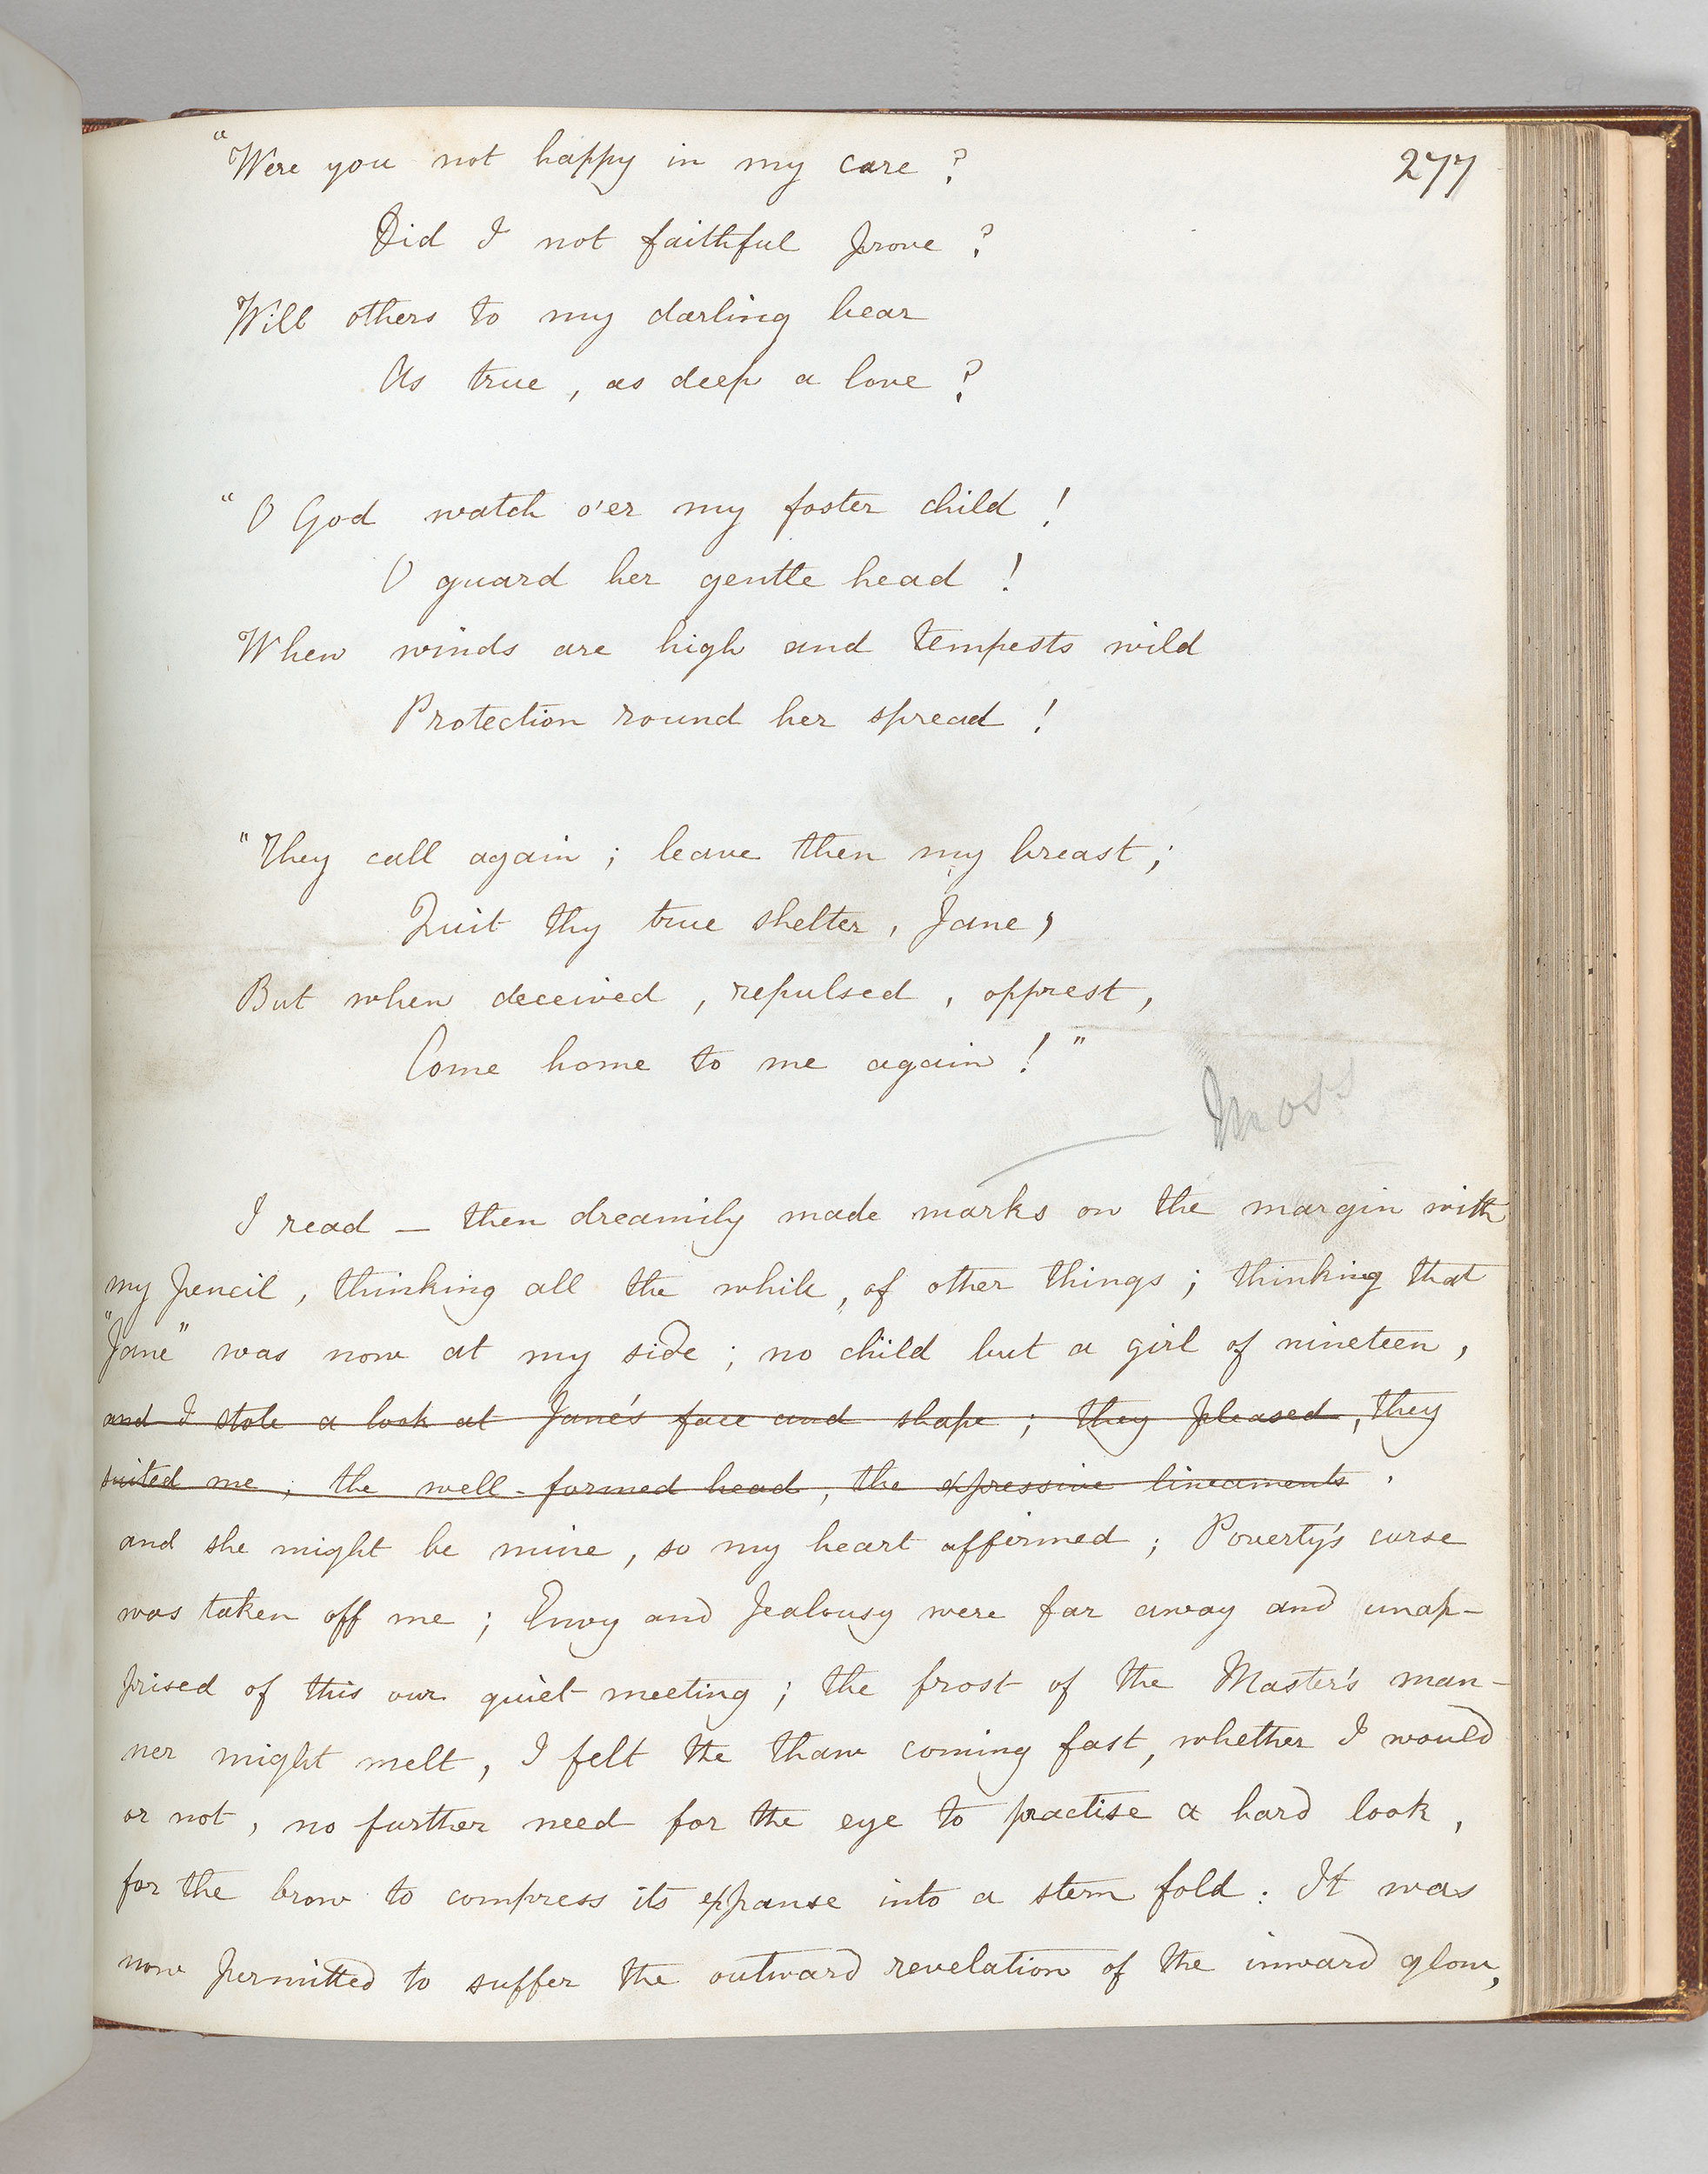 "Were you not happy in my care ?
277
Did I not faithful prove ?
Will others to my darling bear
As true , as deep a love ?
"O God watch o'er my foster child !
O guard her gentle head !
When winds are high and tempests wild
Protection round her spread !
"They call again ; leave then my breast ;
Quit thy true shelter , Jane ,
But when deceived , repulsed , opprest ,
Come home to me again ! "
Moss
I read — then dreamily made marks on the margin with
my pencil , thinking all the while , of other things ; thinking that
"Jane" was now at my side ; no child but a girl of nineteen ,
and I stole a look at Jane's face and shape ; they pleased , they
suited me ; the well-formed head , the expressive lineaments .
and she might be mine , so my heart affirmed ; Poverty's curse
was taken off me ; Envy and Jealousy were far away and unap-
prised of this our quiet meeting ; the frost of the Master's man-
ner might melt , I felt the thaw coming fast , whether I would
or not , no further need for the eye to practise a hard look ,
for the brow to compress its expanse into a stern fold : It was
now permitted to suffer the outward revelation of the inward glow ,